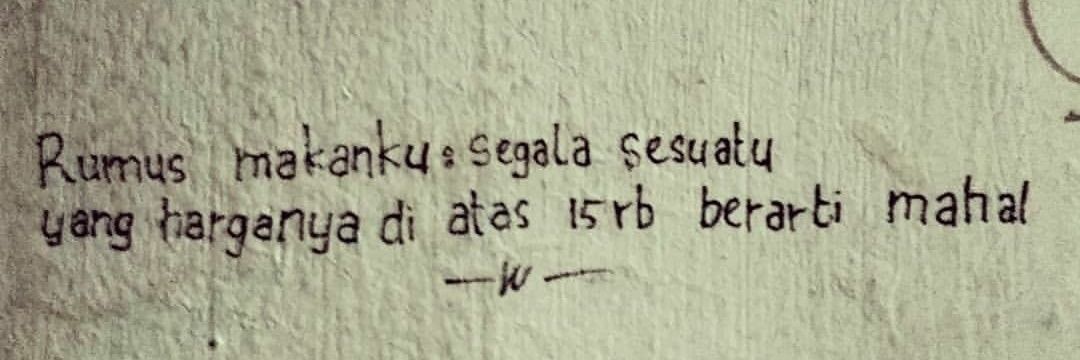 Rumus makanku: segala sesuatu
yang harganya di atas 15rb berarti mahal
—w—